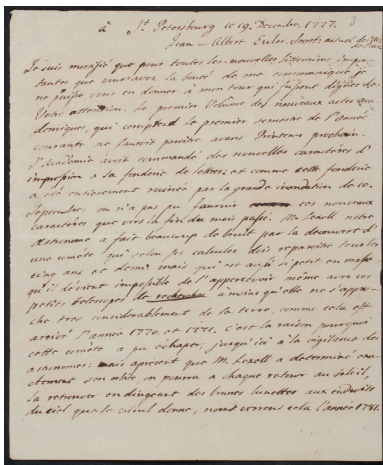 à St. Petersbourg ce 19. Decembre. 1777. 3
Jean-Albert Euler, Secret: actuel de
Je suis mortifié que pour toutes les nouvelles litteraires impor-
tantes que vous avez la bonté de me communiquer je
ne puisse vous en donner à mon tour qui fussent dignes de
Votre attention. Le premier Volume des nouveaux actes aca-
demiques, qui comprend le premier semestre de l'Année
courante ne sauroit paroitre avant Printems prochain.
l'Academie avoit commandé des nouvelles caracteres d'
impression a la fonderie de lettres; et comme cette fonderie
a été entierement ruinée par la grande inondation de ce
Septembre, on n'a pas pu fournir ces nouveaux
caracteres que vers la fin du mois passé. M. Lexell notre
Astronome a fait beaucoup de bruit par la decouverte d'
une comète qui selon ses calculs doit reparoitre tous les
cinq ans et demi, mais qui est aussi si petit en masse
qu'il devient impossible de l'appercevoir même avec ces
petits telescopes de recherches à moins qu'elle ne s'appro-
che tres considerablement de la terre, comme cela est
arrivé l'année 1770. et 1771. c'est la raison pourquoi
cette comète a pu échaper, jusqu'ici à la vigilance des
astronomes: mais apresent que M. Lexell a determiné exa-
ctement son orbite on pourra a chaque retour au soleil,
la retrouver en dirigeant des bonnes lunettes aux endroits
du ciel que le calcul donne, nous verrons cela l'année 1781.